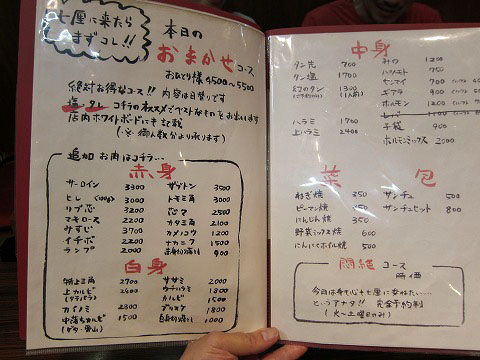 七厘に来たら
まずコレ!!
本日の
おまかせコース
おひとり様 4500〜5500
絶対お得なコース!! 内容は日替りです
塩・タレ コチラのオススメでベストなものをお出しします
店内ホワイトボードに
(※ 御人数分より承ります)
追加 お肉はコチラ...
赤身
サーロイン 3300
ヒレ (100g) 3000
リブ芯 3200
マキロース 2200
みすじ 3700
イチボ 2200
ランプ 2000
ザブトン 3500
トモ三角 3000
芯々 2500
カタ三角 2100
カメノコウ 1200
ナカニク 1500
1900
白身
特上三角 2700
上カルビ 2400
(タテバラ)
カイノミ 2300
中落ちカルビ 1500
ササミ 2000
ウチハラミ 1800
カルビ 1500
ブリスケ 1800
1000
中身
タン先 700
タン塩 1700
幻のタン 1300
(1人前)
ハラミ 1700
上ハラミ 2400
みの 1200
ハツモト 750
センマイ 700
ギアラ 900
ホルモン 1200
レバー 1100
子袋 900
ホルモンミックス 2000
菜
ねぎ焼 350
ピーマン焼 350
にんじん焼 350
野菜ミックス焼 600
にんにくホイル焼 500
包
サンチュ 500
サンチュセット 800
悶絶 コース
時価
今日は身も心も七厘に委ねたい...
というアナタ!! 完全予約制
(火〜土曜日のみ)